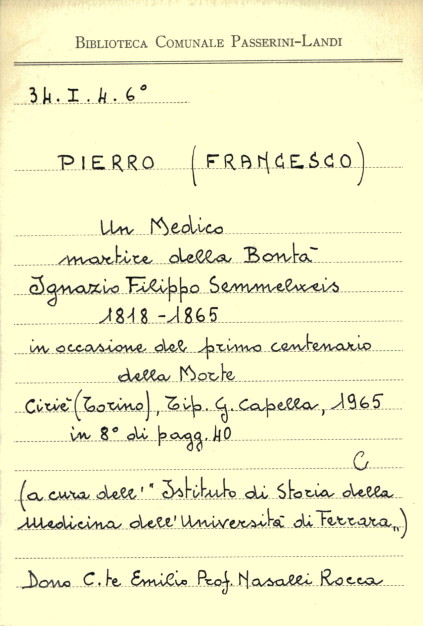 BIBLIOTECA COMUNALE PASSERINI-LANDI
34. I. 4. 6°
PIERRO (FRANCESCO)
Un Medico
martire della Bontà
Ignazio Filippo Semmelweis
1818 - 1865
in occasione del primo centenario
della Morte
Ciriè (Torino), Tip. G. Capella, 1965
in 8° di pagg. 40
C
(a cura dell'" Istituto di Storia della
Medicina dell'Università di Ferrara„)
Dono C.te Emilio Prof. Nasalli Rocca